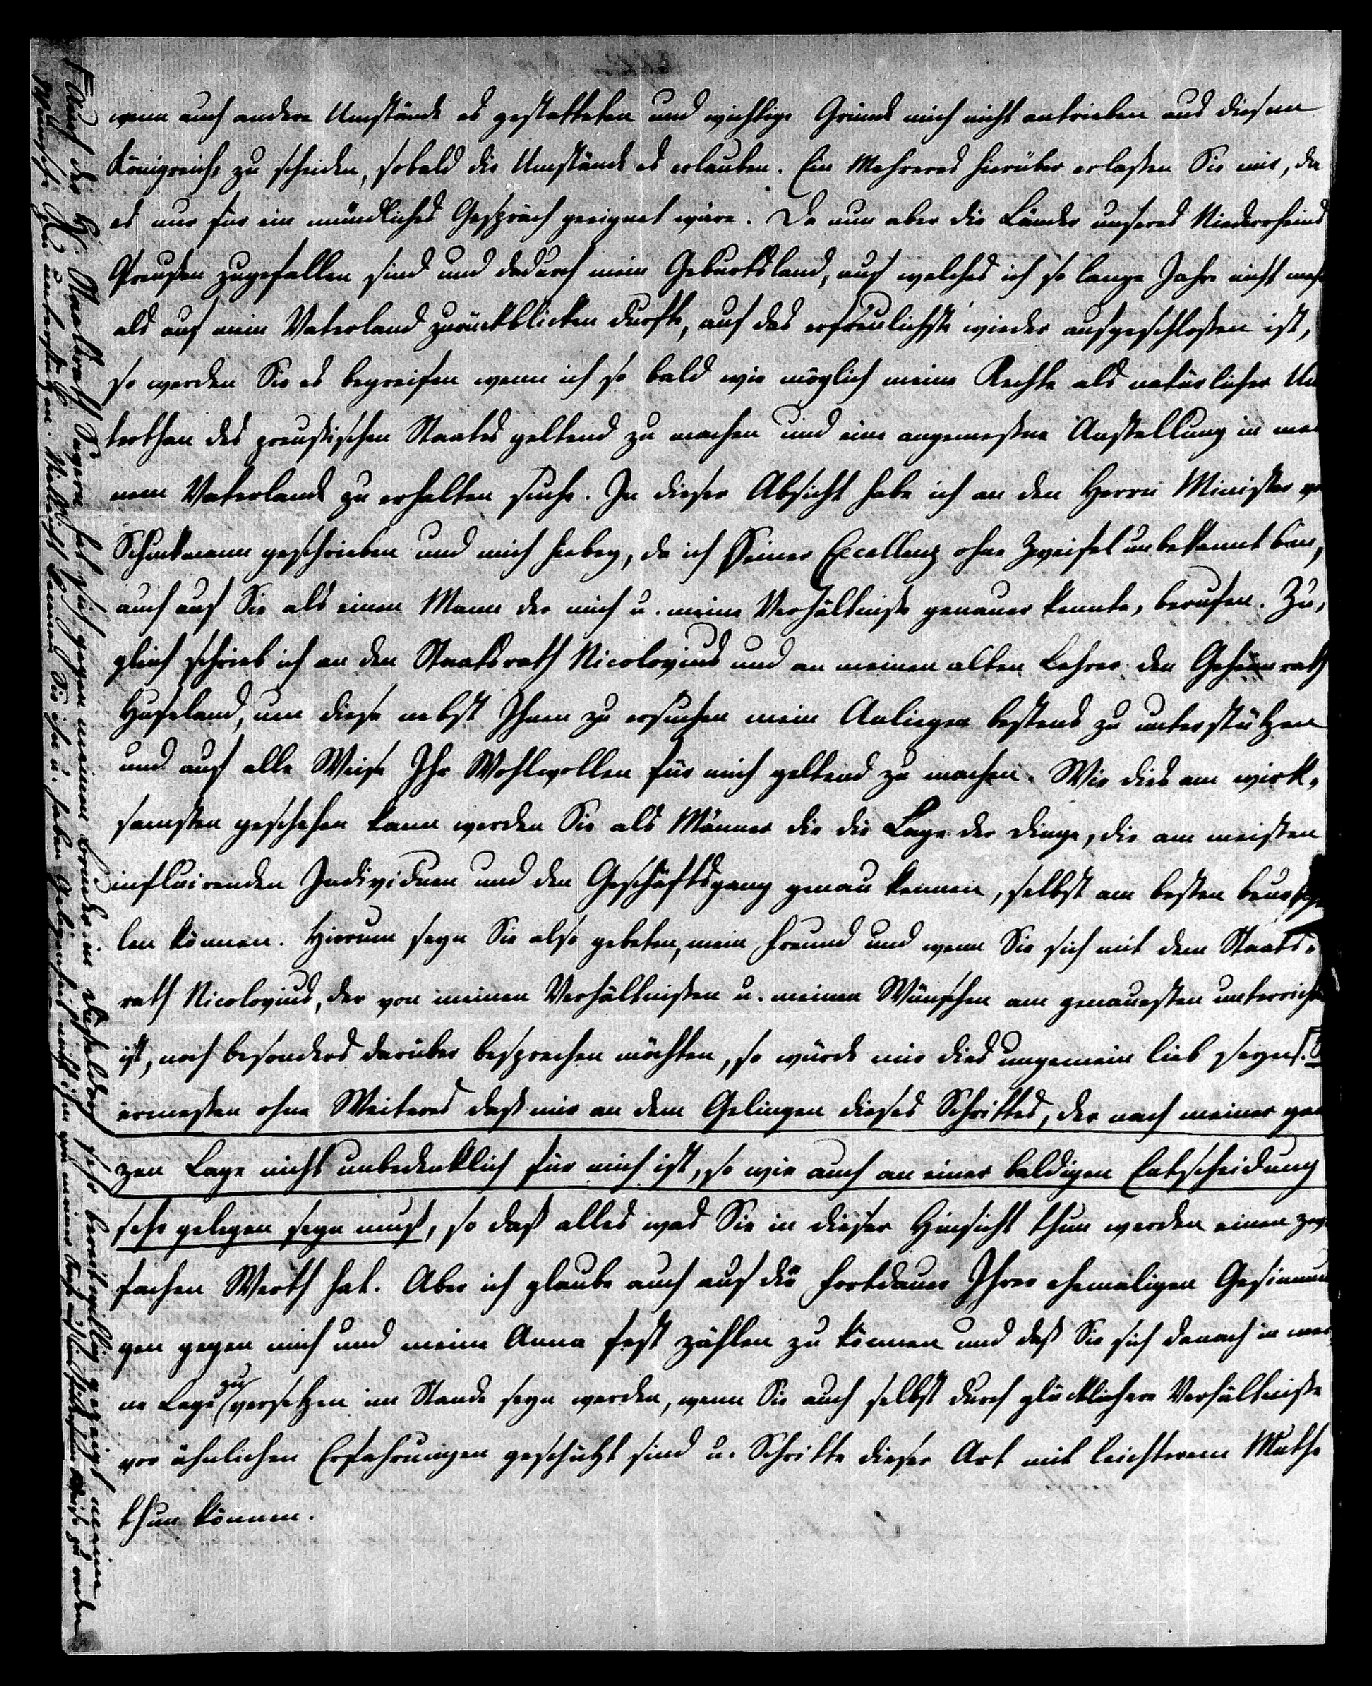 wenn auch andere Umstände es gestatteten und wichtige Gründe mich nicht antrieben aus diesem
Königreiche zu scheiden, sobald die Umstände es erlauben. Ein Mehreres hierüber erlaßen Sie mir, da
es nur für ein mündliches Gespräch geeignet wäre. Da nun aber die Länder unseres Niederrheins
Preußen zugefallen sind und dadurch mein Geburtsland, auf welches ich so lange Jahre nicht mehr
als auf mein Vaterland zurückblicken durfte, auf das erfreulichste wieder aufgeschloßen ist,
so werden Sie es begreifen wenn ich so bald wie möglich meine Rechte als natürlicher Un
terthan des preußischen Staates geltend zu machen und eine angemeßene Anstellung in mei
nem Vaterlande zu erhalten suche. In dieser Absicht habe ich an den Herrn Minister von
Schuckmann geschrieben und mich hiebey, da ich Seiner Excellenz ohne Zweifel unbekannt bin,
auch auf Sie als einen Mann der mich u. meine Verhältniße genauer kennte, berufen. Zu,
gleich schrieb ich an den Staatsrath Nicolovius und an meinen alten Lehrer den Geheimrath
Hufeland, um diese nebst Ihnen zu ersuchen mein Anliegen bestens zu unterstützen
und auf alle Weise Ihr Wohlwollen für mich geltend zu machen. Wie dies am wirk,
samsten geschehen kann werden Sie als Männer die die Lage der Dinge, die am meisten
influirenden Individuen und den Geschäftsgang genau kennen, selbst am besten beurthei
len können. Hierum seyn Sie also gebeten, mein Freund und wenn Sie sich mit dem Staats,
rath Nicolovius, der von meinen Verhältnißen u. meinen Wünschen am genauesten unterrichtet
ist, noch besonders darüber besprechen möchten, so würde mir dies ungemein lieb seyn.
ermeßen ohne Weiteres daß mir an dem Gelingen dieses Schrittes, der nach meiner gan
zen Lage nicht unbedenklich für mich ist, so wie auch an einer baldigen Entscheidung
sehr gelegen seyn muß, so daß alles was Sie in dieser Hinsicht thun werden einen zwie
fachen Werth hat. Aber ich glaube auch auf die Fortdauer Ihrer ehemaligen Gesinnun
gen gegen mich und meine Anna fest zählen zu können und daß Sie sich danach in mei
ne Lage zu versetzen im Stande seyn werden, wenn Sie auch selbst durch glücklichere Verhältniße
vor ähnlichen Erfahrungen geschützt sind u. Schritte dieser Art mit leichterem Muthe
thun können.
Auch der H. Staatsrath hat sich gegen meinen Bruder in Düsseldorf sehr bereitwillig gezeigt meine
Wünsche zu unterstützen. Vielleicht kennen Sie ihn u. haben Gelegenheit mit ihm von meiner zu reden